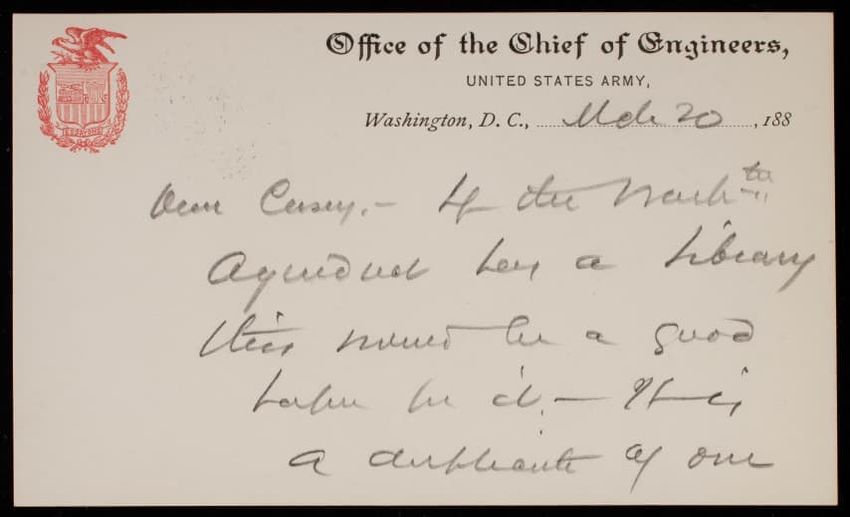 Office of the Chief of Engineers,
UNITED STATES ARMY,
Washington, D. C., Mch 20, 188
Dear Casey,- If the Wash
Aqueduct has a library
this would be a good
in it. - It is
a duplicate of one